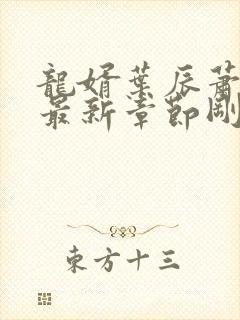 龍婿葉辰蕭
最新章節剛
東方十三